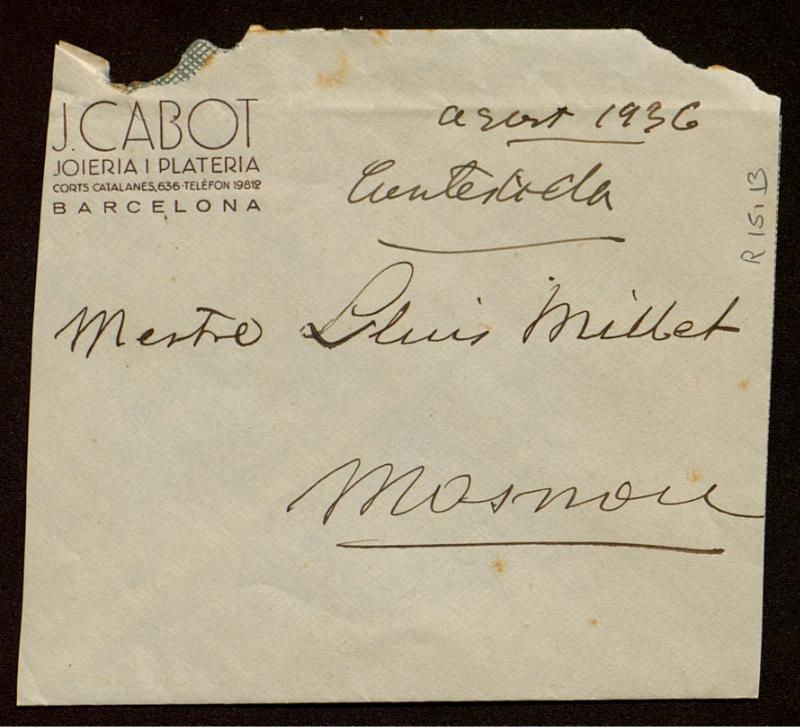 J. CABOT
JOIERIA I PLATERIA
CORTS CATALANES, 636 - TELÈFON 19812
BARCELONA
agost 1936
Contestada
R 15, 13
Mestre Lluis Millet
Masnou